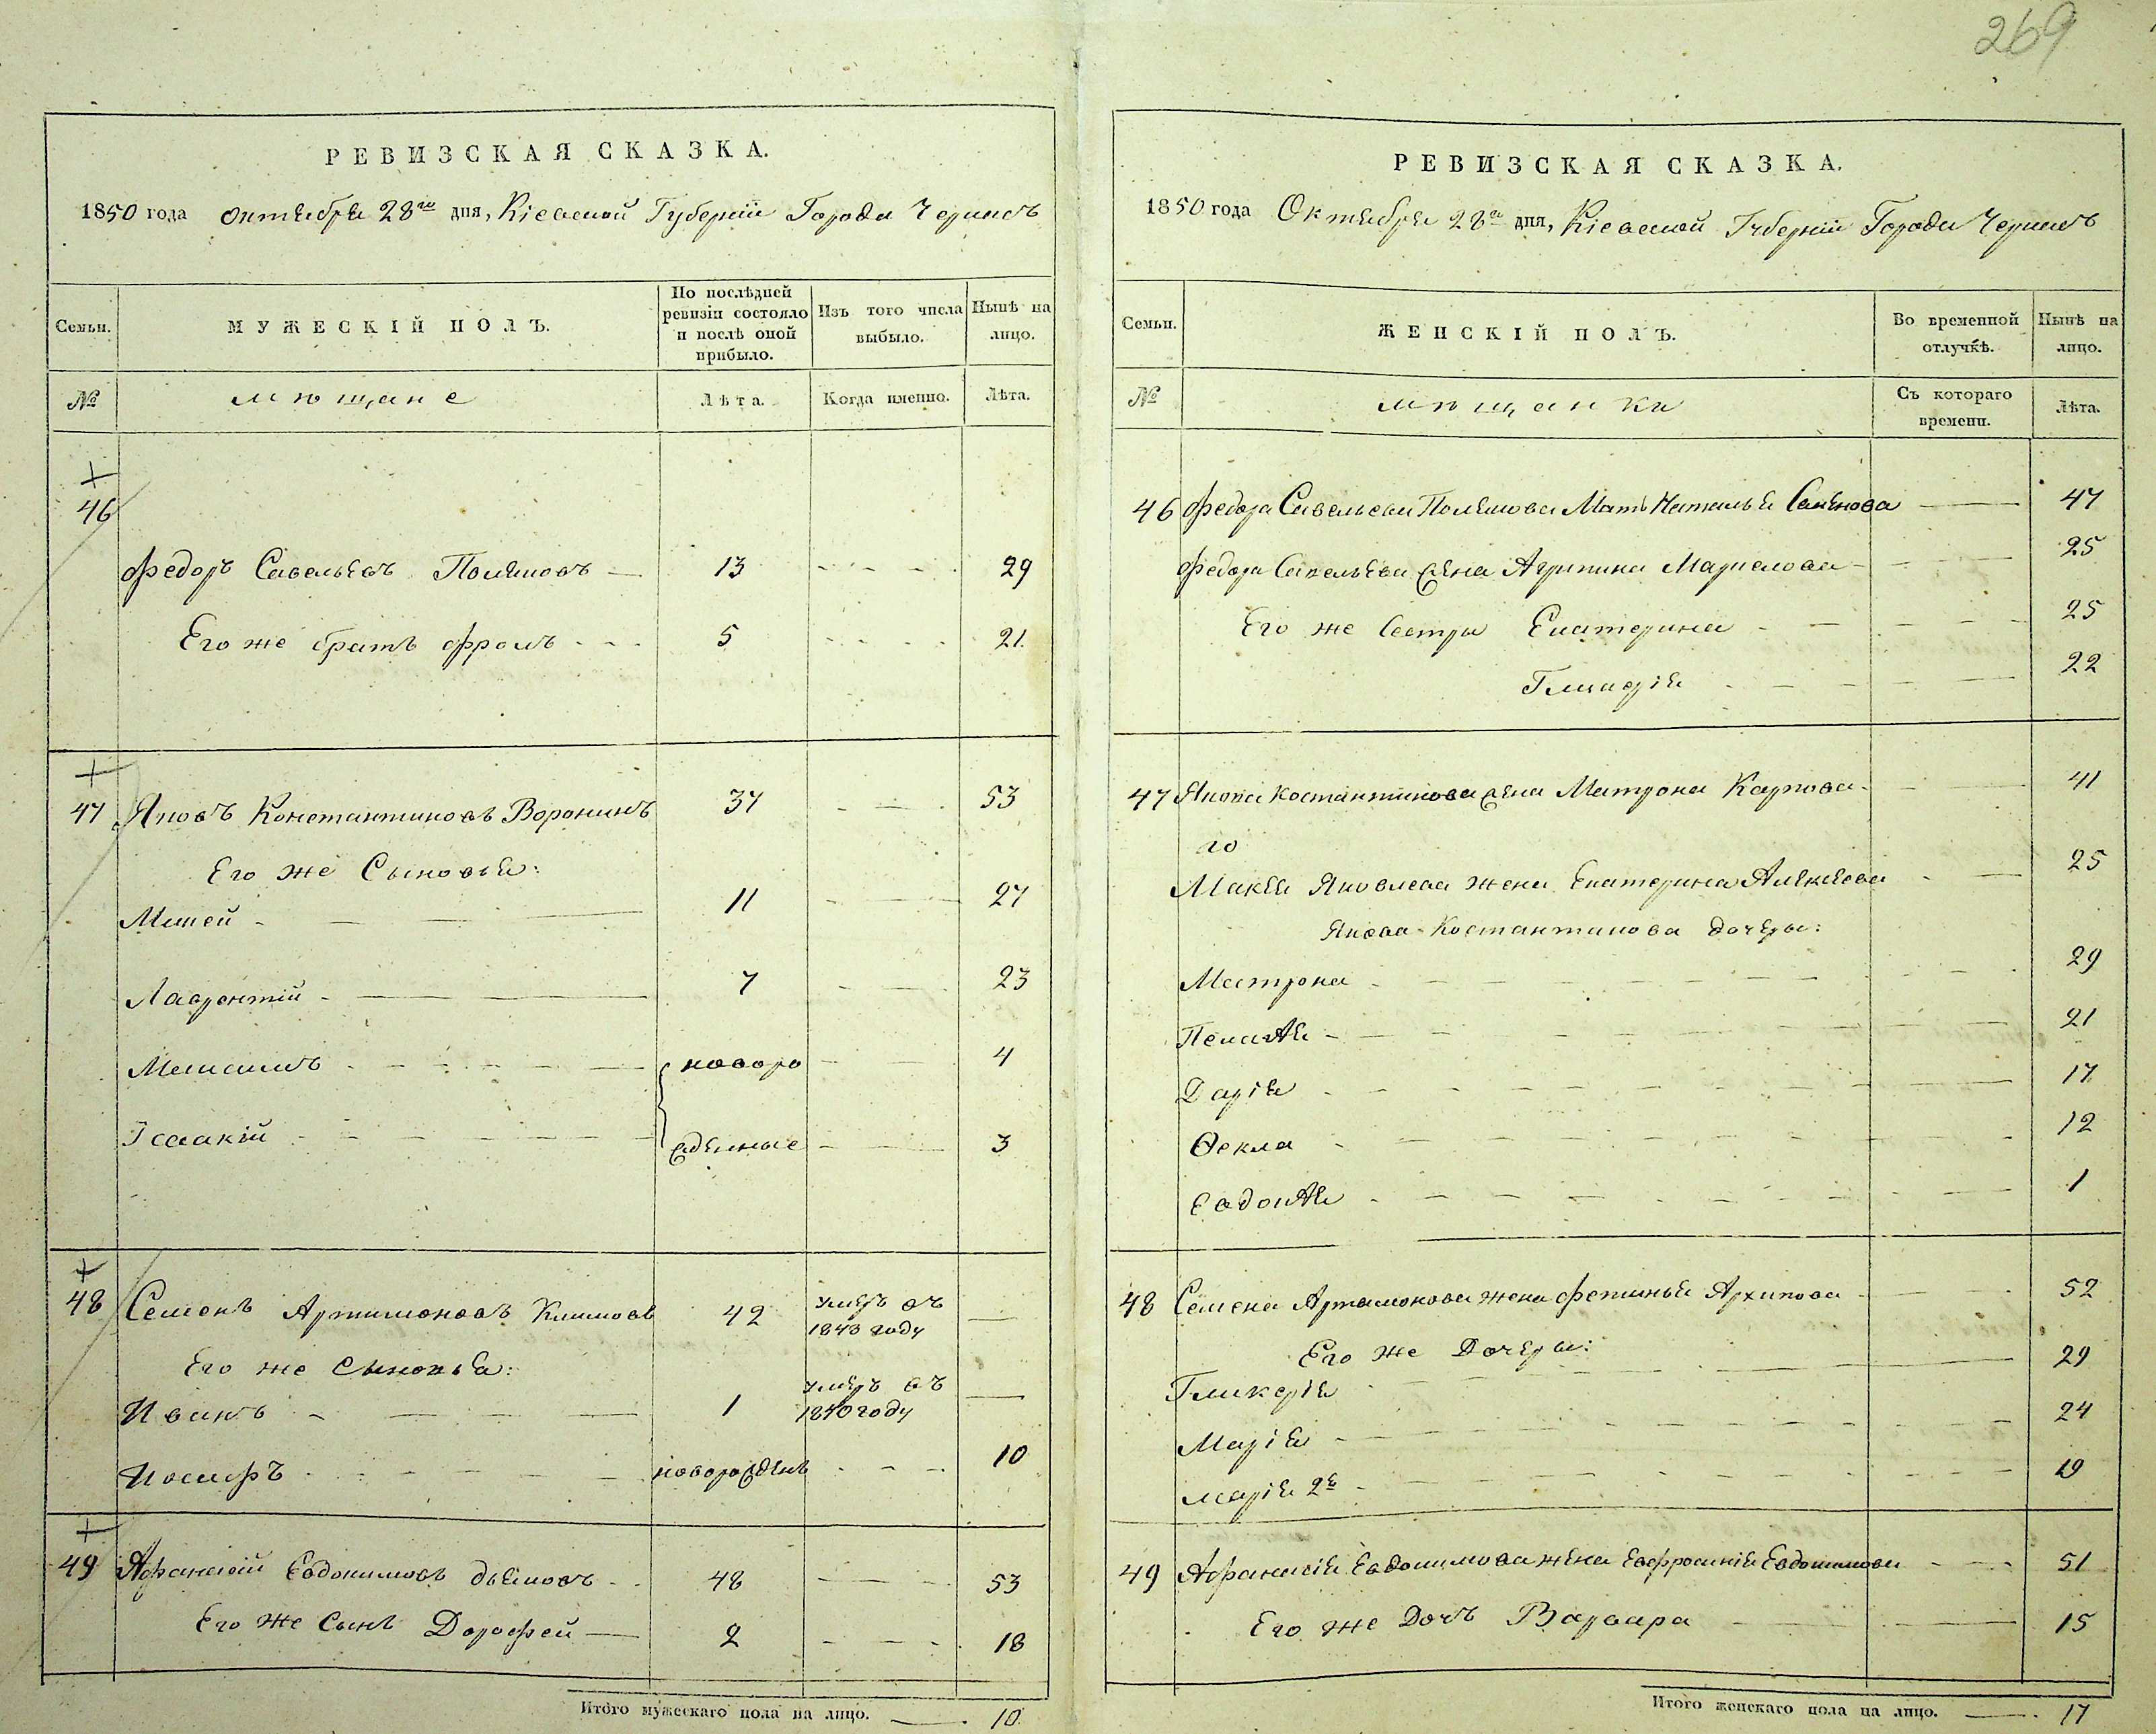 269
РЕВИЗСКАЯ СКАЗКА.
1850 года октября 28го дня, Кіевской Губерніи Города Черкасъ
Семьи.
МУЖЕСКІЙ ПОЛЪ.
По послѣдней ревизіи состояло и послѣ оной прибыло.
Изъ того числа выбыло.
Нынѣ на лицо.
№
мѣщане
Лѣта.
Когда именно.
Лѣта.
46
Федоръ Савельевъ 13 29
Его же братъ Фролъ 5 21
47 Яковъ Константиновъ Воронинъ 37 53
Его же Сыновья:
Мокей 11 27
Лаврентій 7 23
новоро 4
Ісаакій жденные 3
48 Семенъ Артамоновъ Климовъ 42 умеръ въ 1843 году
Его же Сыновья:
Иванъ 1 умеръ въ 1840 году
Иосифъ новорожденъ 10
49 Афанасій Евдокимовъ 48 53
Его же Сынъ Дорофей 2 18
Итого мужескаго пола на лицо. 10
РЕВИЗСКАЯ СКАЗКА.
1850 года Октября 28го дня, Кіевской Губерніи Города Черкасъ
Семьи.
ЖЕНСКІЙ ПОЛЪ.
Во временной отлучкѣ.
Нынѣ на лицо.
№
мѣщанки
Съ котораго времени.
Лѣта.
46 Федора Савельева Мать Наталья Семенова 47
Федора Савельева жена Агрипина 25
Его же Сестры Екатерина 25
Гликерія 22
47 Якова Костантинова жена Матрона Карпова 41
го
Макея Яковлева жена Екатерина Алексеева 25
Якова Костантинова дочеры:
Матрона 29
Пелагія 21
Дарія 17
Ѳекла 12
Евдокія 1
48 Семена Артамонова жена Фетинья Архипова 52
Его же Дочеры:
Гликерія 29
Марія 24
Марія 2я 19
49 Афанасія Евдокимова жена Евфросинія Евдокимова 51
Его же Дочь Варвара 15
Итого женскаго пола на лицо. 17